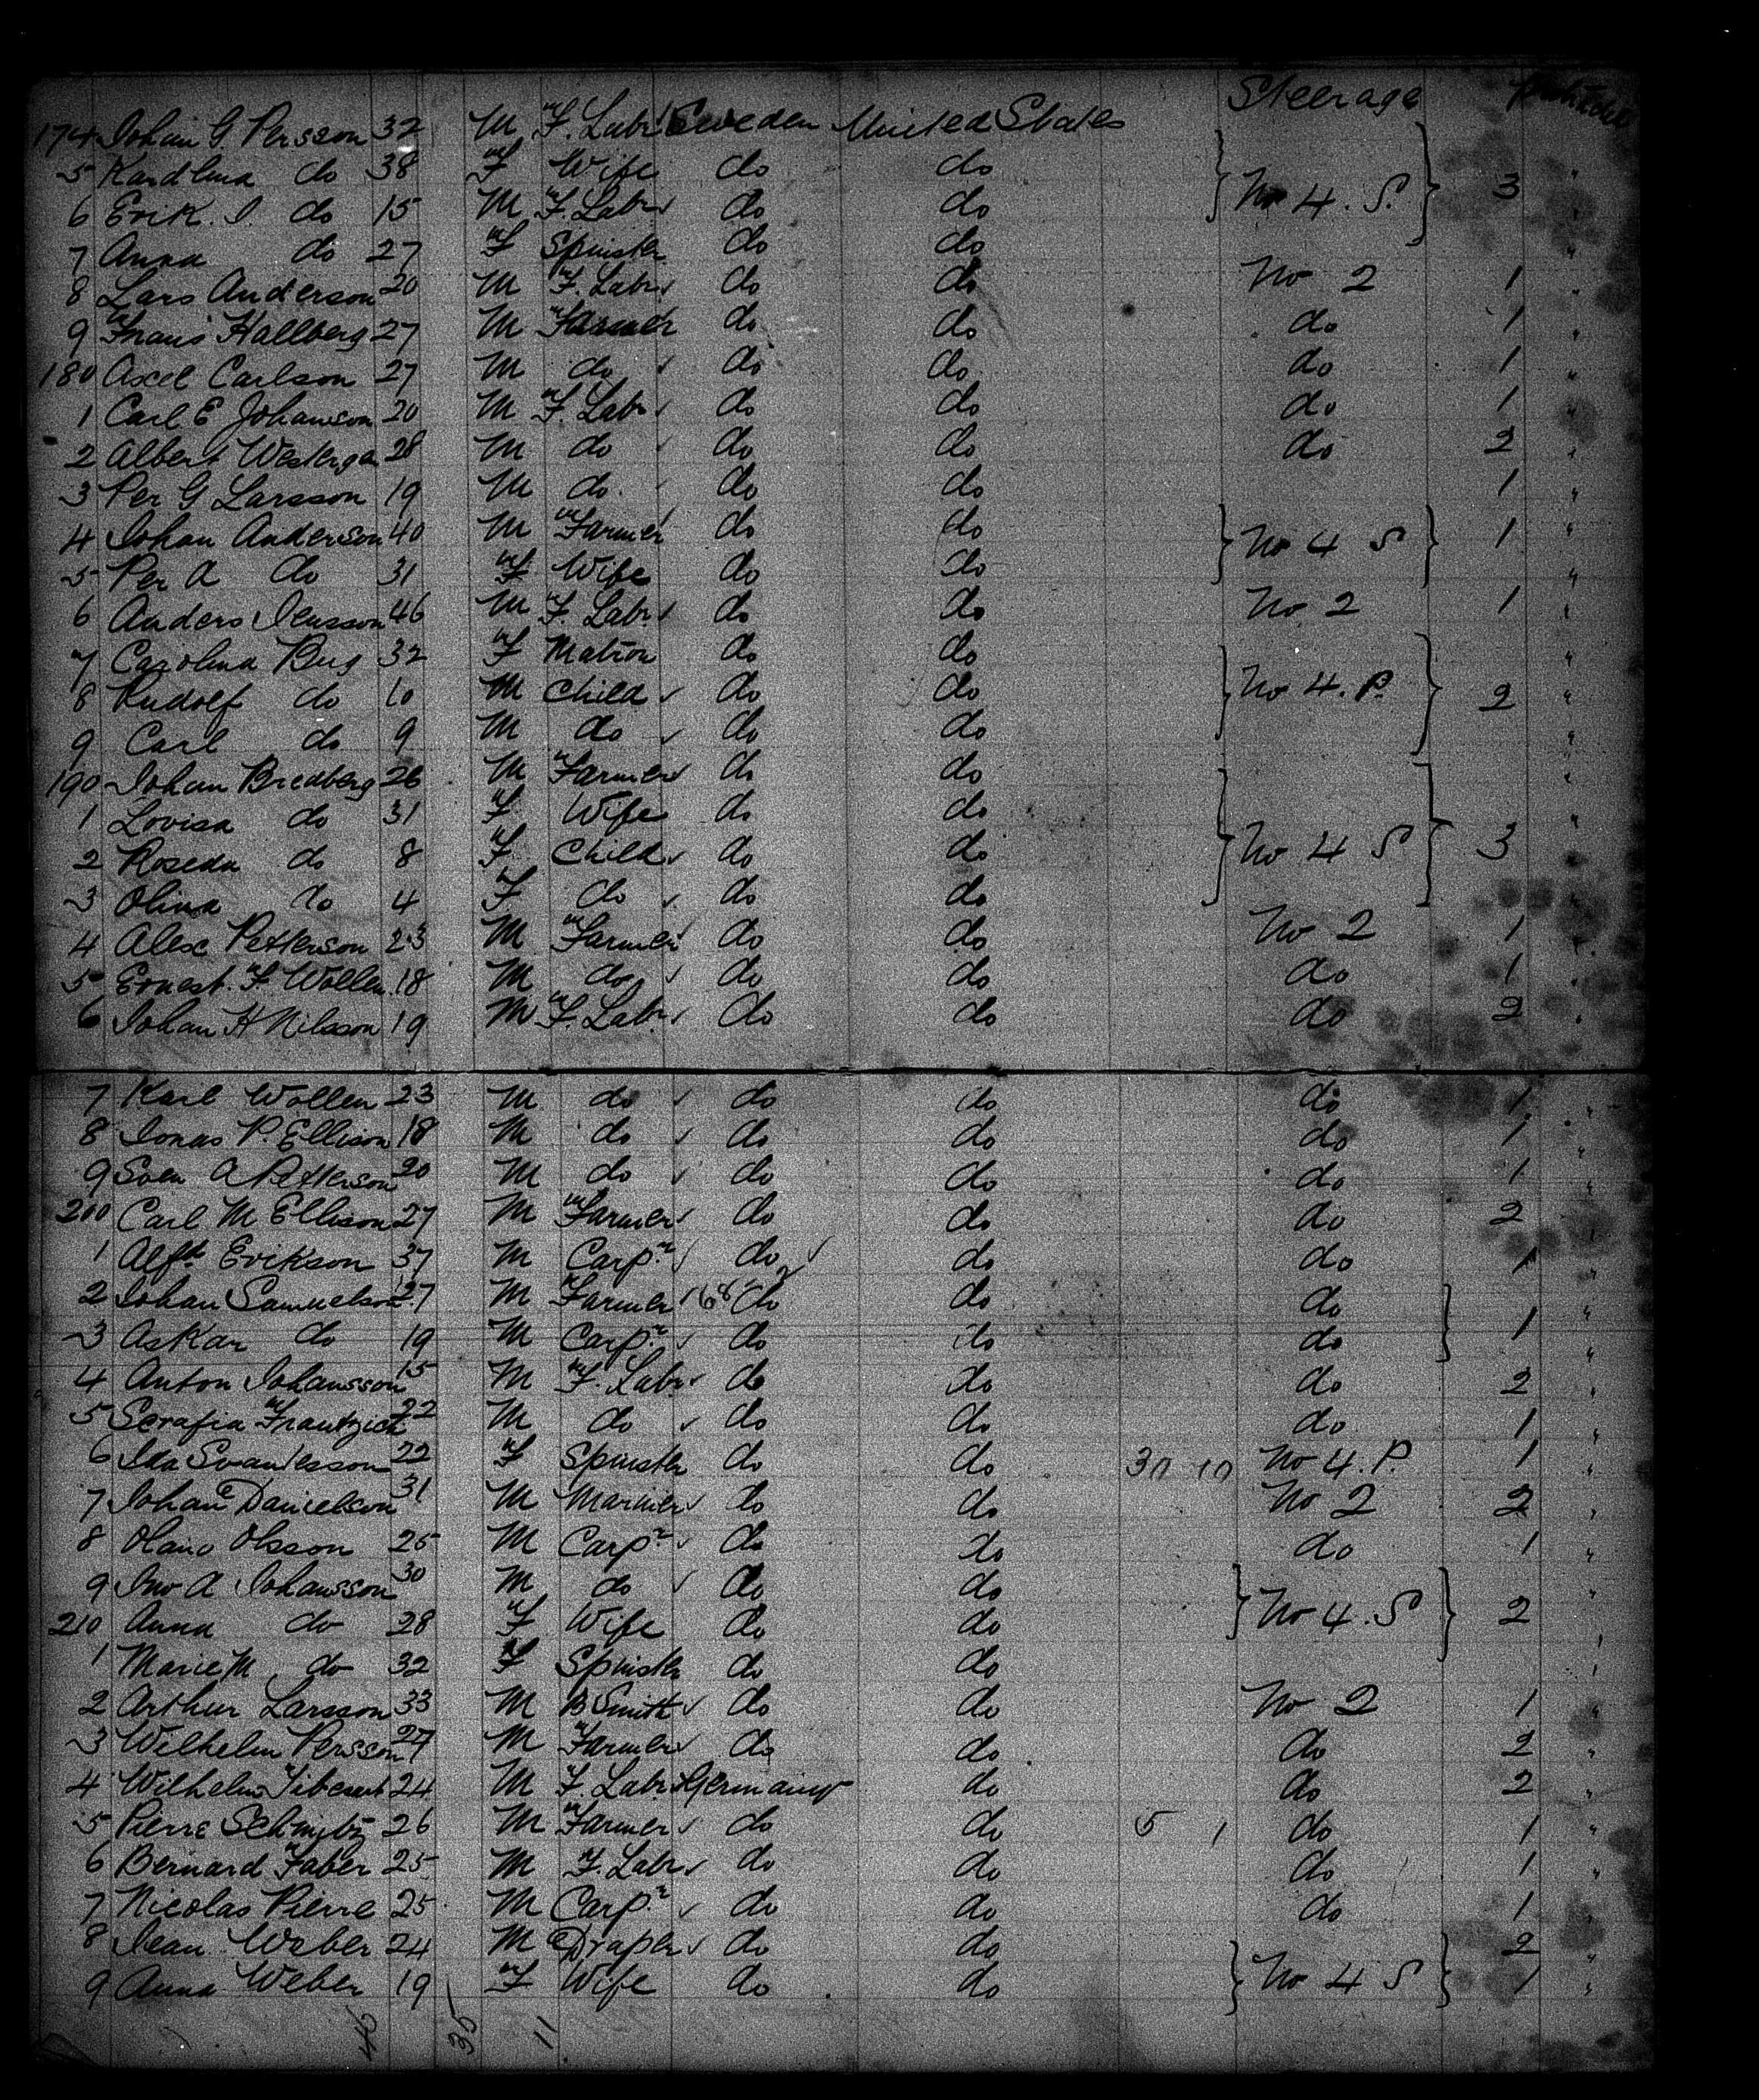 Steerage
174 Johan G. Persson 32 M F. Labr Sweden United States
5 Karolina do 38 F Wife do do
6 Erik. J. do 15 M F. Labr do do No 4. S. 3
7 Anna do 27 F Spinster do do
8 Lars Anderson 20 M F. Labr do do No 2 1
9 Frans Hallberg 27 M Farmer do do do 1
180 Axel Carlson 27 M do do do do 1
1 Carl E Johansson 20 M F. Labr do do do 1
2 Albert 28 M do do do do 2
3 Per G Larsson 19 M do do do 1
4 Johan Anderson 40 M Farmer do do No 4 S 1
5 Per A do 31 F Wife do do
6 Anders Jensson 46 M F. Labr do do No 2 1
7 Carolina Bug 32 F Matron do do
8 Rudolf do 10 M Child do do No 4. P. 2
9 Carl do 9 M do do do
190 Johan Bredberg 26 M Farmer do do
1 Lovisa do 31 F Wife do do
2 Roseda do 8 F Child do do No 4 S 3
3 Olina do 4 F do do do
4 Alex Petterson 23 M Farmer do do No 2 1
5 Ernest. F. Wollen 18 M do do do do 1
6 Johan H Nilsson 19 M F. Labr do do do 2
7 Karl Wollen 23 M do do do do 1
8 Jonas P. Ellison 18 M do do do do 1
9 Sven A Petterson 20 M do do do do 1
200 Carl M Ellison 27 M Farmer do do do 2
1 Alfd Erikson 37 M Carpr do do do 1
2 Johan Samuelson 27 M Farmer 168 do do do
3 Askar do 19 M Carpr do do do 1
4 Anton Johansson 15 M F. Labr do do do 2
5 Serafia 22 M do do do do 1
6 Ida Svantesson 22 F Spinster do do 30 10 No 4. P. 1
7 Johan Danielson 31 M Marine do do No 2 2
8 Olano Olsson 25 M Carpr do do do 1
9 Jno A Johansson 30 M do do do
210 Anna do 28 F Wife do do No 4. S 2
1 Marie M do 32 F Spinster do do
2 Arthur Larsson 33 M B Smith do do No 2 1
3 Wilhelm Persson 27 M Farmer do do do 2
4 Wilhelm 24 M F. Labr Germany do do 2
5 Pierre 26 M Farmer do do 5 1 do 1
6 Bernard Faber 25 M F. Labr do do do 1
7 Nicolas Pierre 25 M Carpr do do do 1
8 Jean Weber 24 M Draper do do 2
9 Anna Weber 19 F Wife do do No 4 S 1
35 11